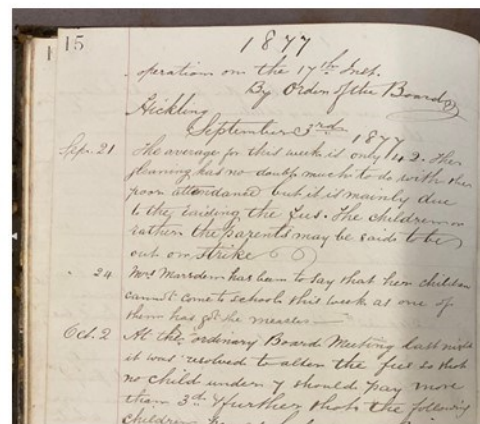 15
1877
operation on the 17th Inst.
By Order of the Board
Hickling
September 3rd 1877
Sepr. 21 The average for this week is only 42. The
gleaning has no doubt much to do with the
poor attendance but it is mainly due
to the raising the fees. The children or
rather the parents may be said to be
out on strike
" 24 Mrs Marsden has been to say that her children
cannot come to school this week as one of
them has got the measles
Oct. 2 At the ordinary Board Meeting last night
it was resolved to alter the fees so that
no child under 7 should pay more
than 3d & further that the following
children